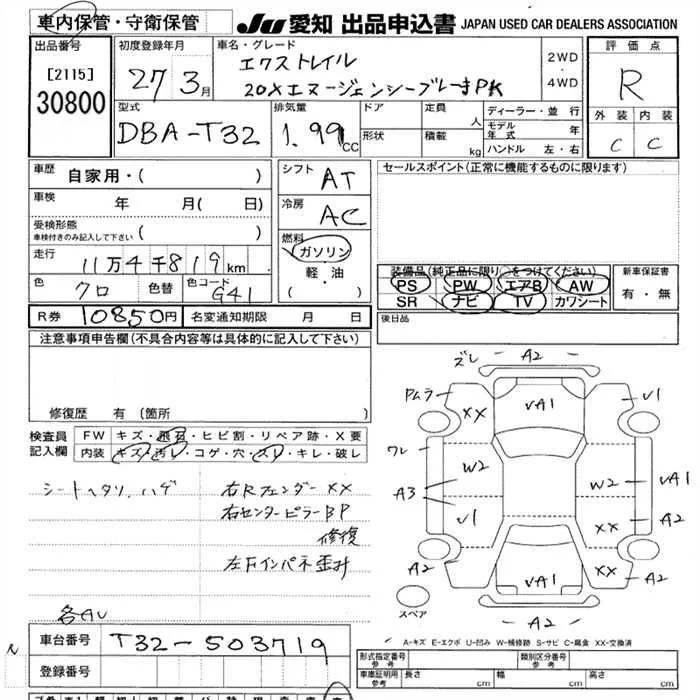 車内保管・守衛保管
JU 愛知 出品申込書 JAPAN USED CAR DEALERS ASSOCIATION
出品番号
[2115]
30800
初度登録年月
27 3月
車名・グレード
エクストレイル
20Xエマージェンシーブレーキ PK
2WD
・
4WD
評価点
R
外装 内装
C C
型式
DBA-T32
排気量
1.99 CC
ドア
形状
定員 人
積載 kg
ディーラー・並行
モデル年式 年
ハンドル 左・右
車歴 自家用・( )
車検 年 月( 日)
受検形態
車検付きのみ記入して下さい ( )
走行 11万4千819km
色 クロ 色替 色コード G41
シフト AT
冷房 AC
燃料
ガソリン
・
軽・油
( )
セールスポイント(正常に機能するものに限ります)
装備品(純正品に限り○をつけてください)
PS PW エアB AW
SR ナビ TV カワシート
新車保証書
有・無
R券 10850円 名変通知期限 月 日
後日品
注意事項申告欄(不具合内容等は具体的に記入して下さい)
修復歴 有(箇所 )
検査員記入欄
FW キズ・飛石・ヒビ割・リペア跡・X要
内装 キズ・汚レ・コゲ・穴・スレ・キレ・破レ
シートヘタリ、ハゲ
右Rフェンダー XX
右センターピラーBP
修復
左Fインパネ歪み
各AU
ズレ A2
PMムラ XX VA1 V1
ワレ
W2 W2
A3 V1 XX A2
A2 VA1 XX A2
A2
スペア
A-キズ E-エクボ U-凹み W-補修跡 S-サビ C-腐食 XX-交換済
車台番号 T32-503719
登録番号
形式指定番号 参考
類別区分番号 参考
車庫証明用 参考 長さ cm 幅 cm 高さ cm